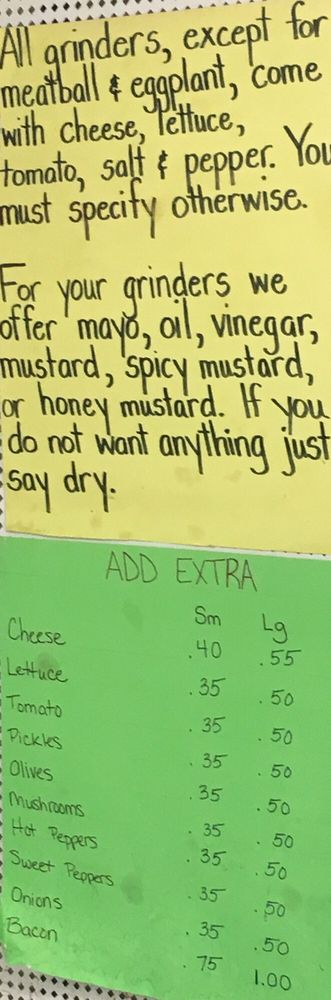 All grinders, except for
meatball & eggplant, come
with cheese, lettuce,
tomato, salt & pepper. You
must specify otherwise.
For your grinders we
offer mayo, oil, vinegar,
mustard, spicy mustard,
or honey mustard. If you
do not want anything just
say dry.
ADD EXTRA
Sm Lg
Cheese .40 .55
Lettuce .35 .50
Tomato .35 .50
Pickles .35 .50
Olives .35 .50
Mushrooms .35 .50
Hot Peppers .35 .50
Sweet Peppers .35 .50
Onions .35 .50
Bacon .75 1.00